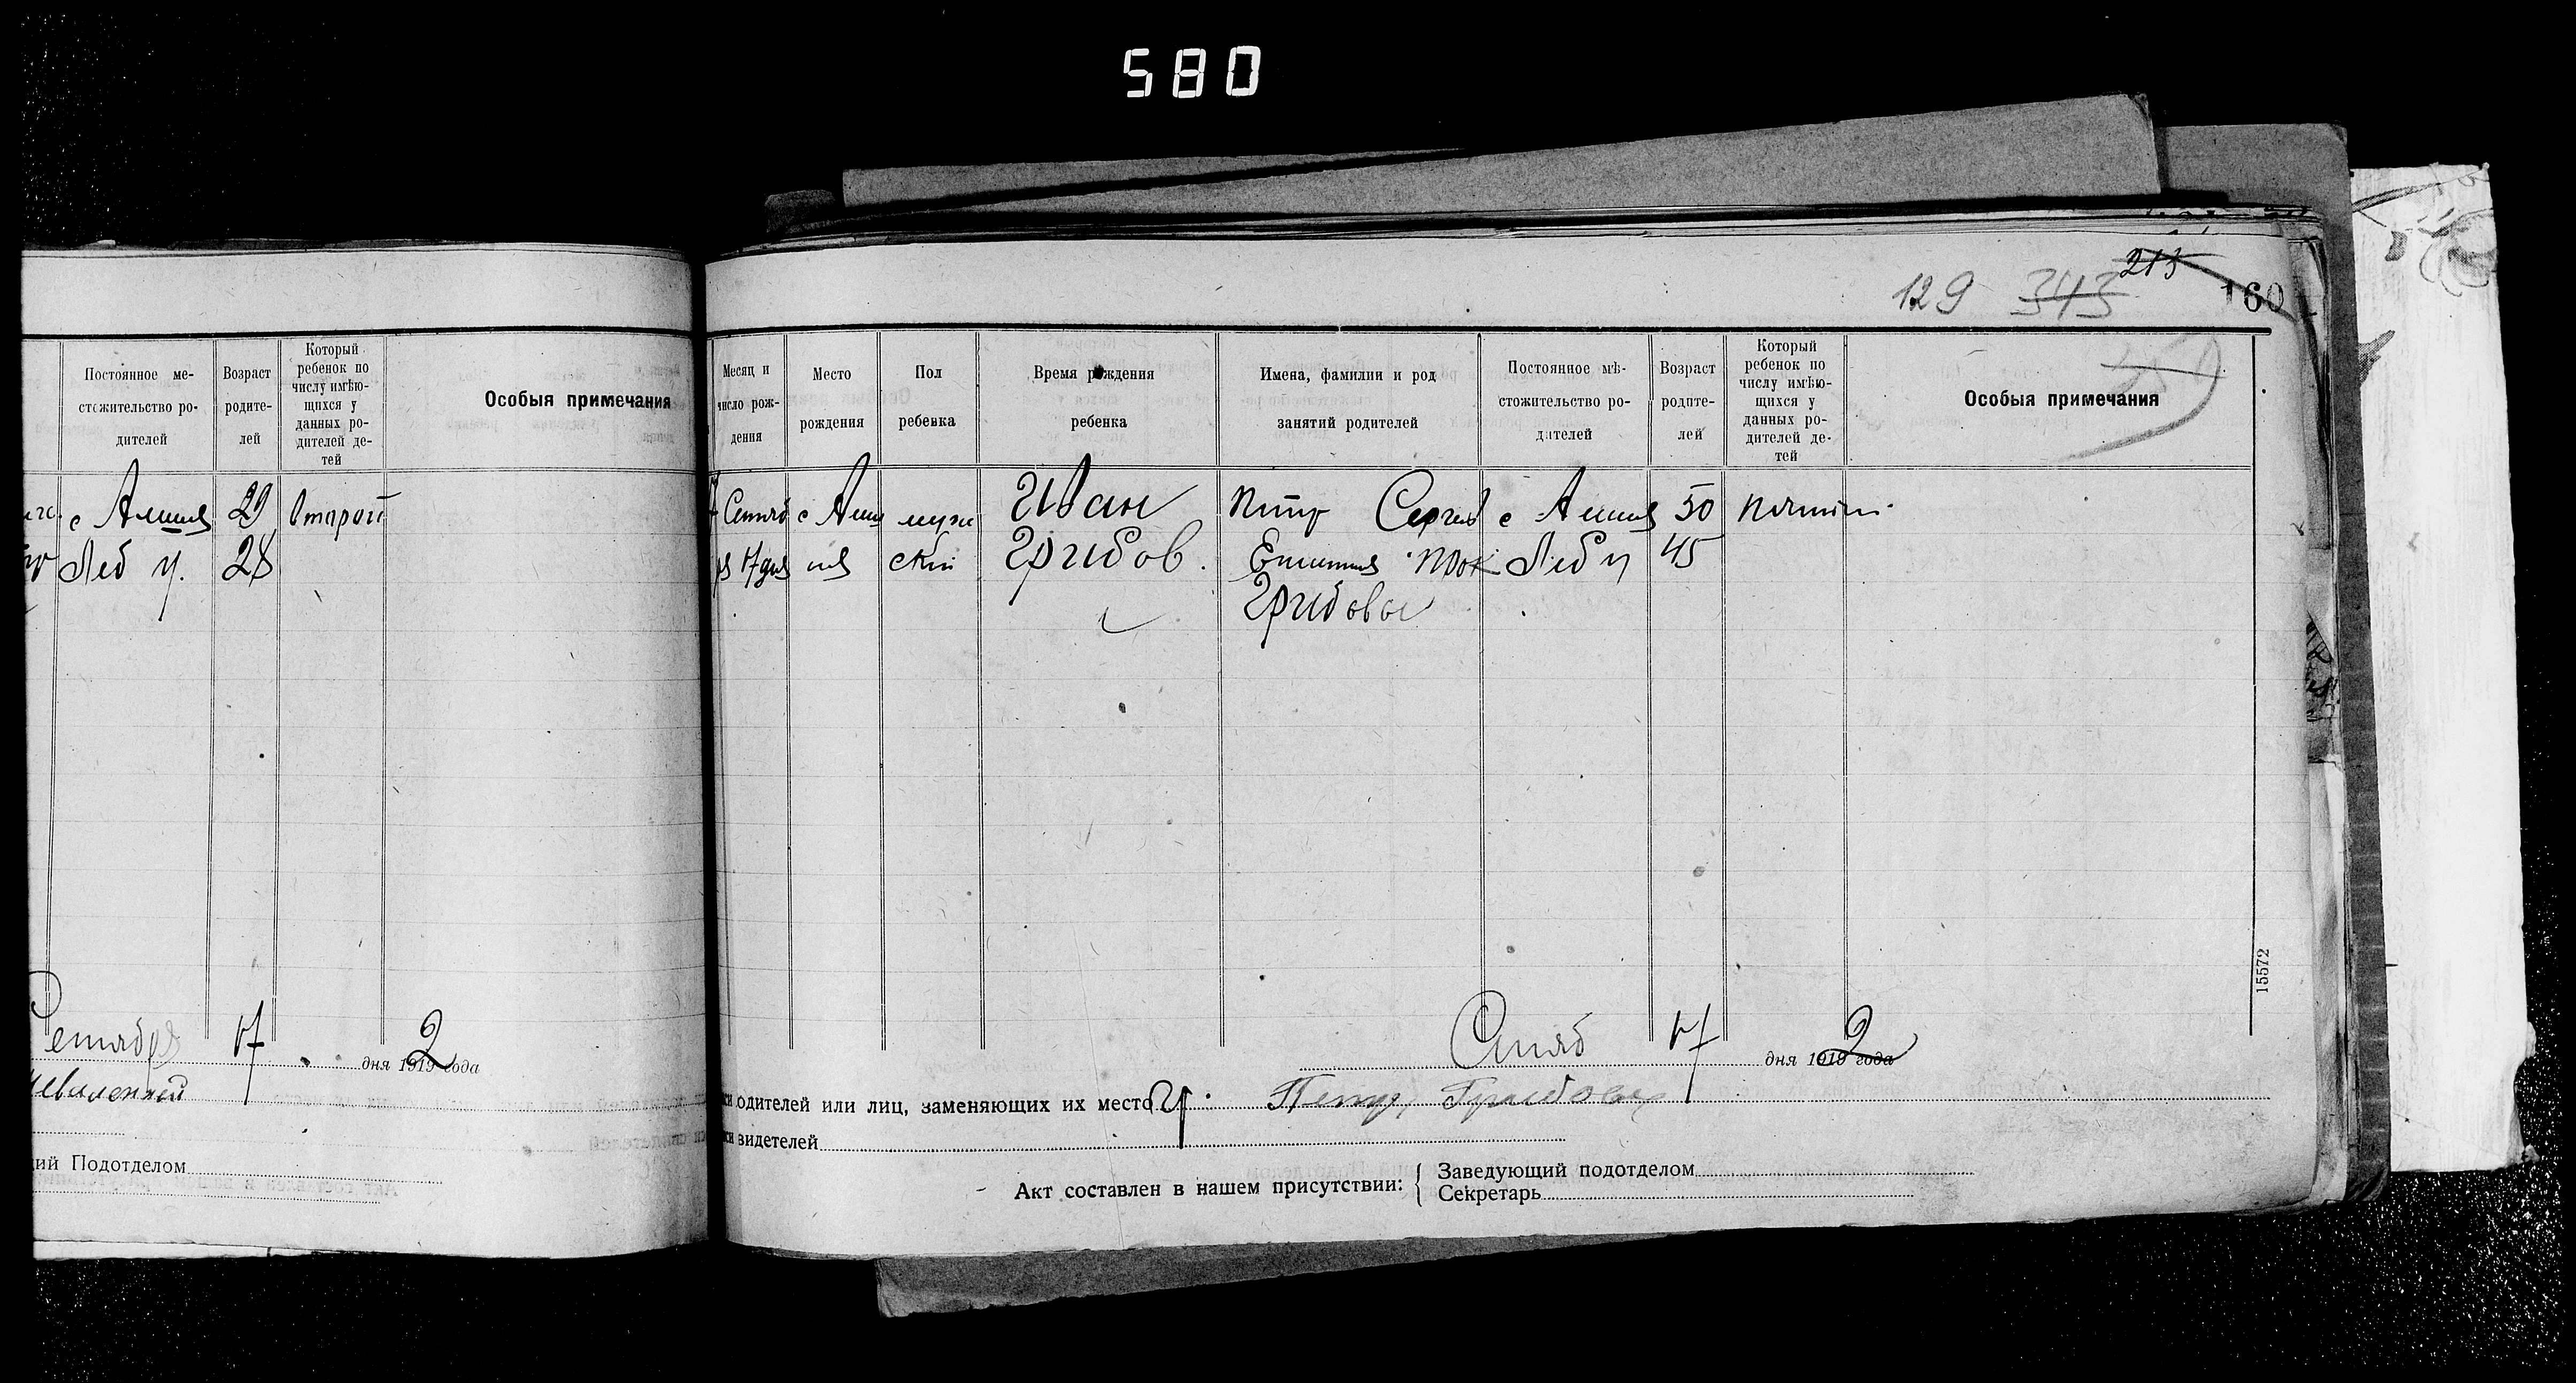 580
213
129 343 160
Постоянное ме-
стожительство ро-
дителей
Возраст
родите-
лей
Который
ребенок по
числу имѣю-
щихся у
данных ро-
дителей де-
тей
Особыя примечания
29 Второй
28
Сентября 17 дня 1919 года
2
щий Подотделом
Месяц и
число рож-
дения
Место
рождения
Пол
ребенка
Время рождения
ребенка
Имена, фамилии и род
занятий родителей
Постоянное мѣ-
стожительство ро-
дителей
Возраст
родите-
лей
Который
ребенок по
числу имѣю-
щихся у
данных ро-
дителей де-
тей
Особыя примечания
муж Иван Петр Сергев 50
ский Грибов. 45
Грибовы
15572
17 дня 1919 года
2
одителей или лиц, заменяющих их место Петр Грибов
видетелей
Акт составлен в нашем присутствии:
Заведующий подотделом
Секретарь